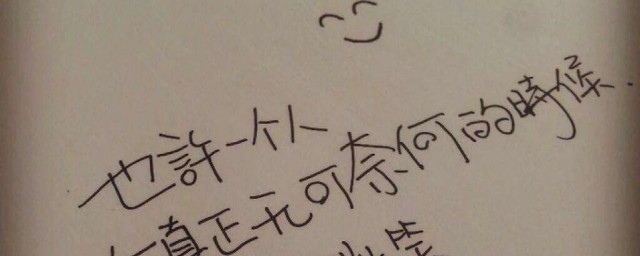 也許一个人
真正无可奈何的時候.